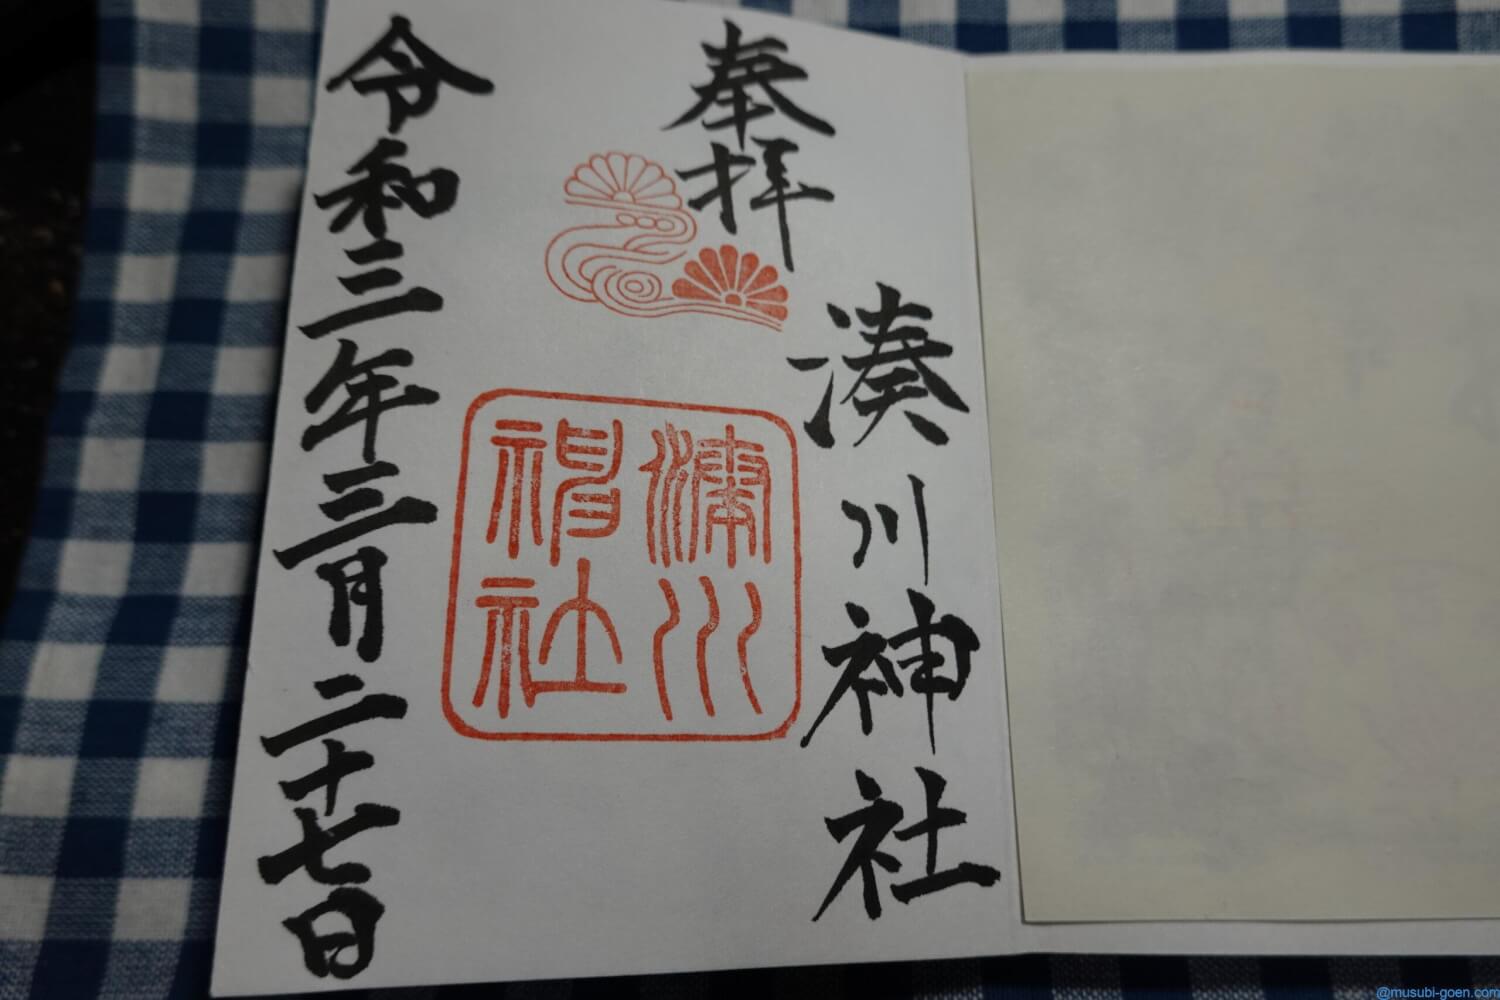 奉拝
湊川神社
湊川
神社
令和三年三月二十七日
@musubi-goen.com